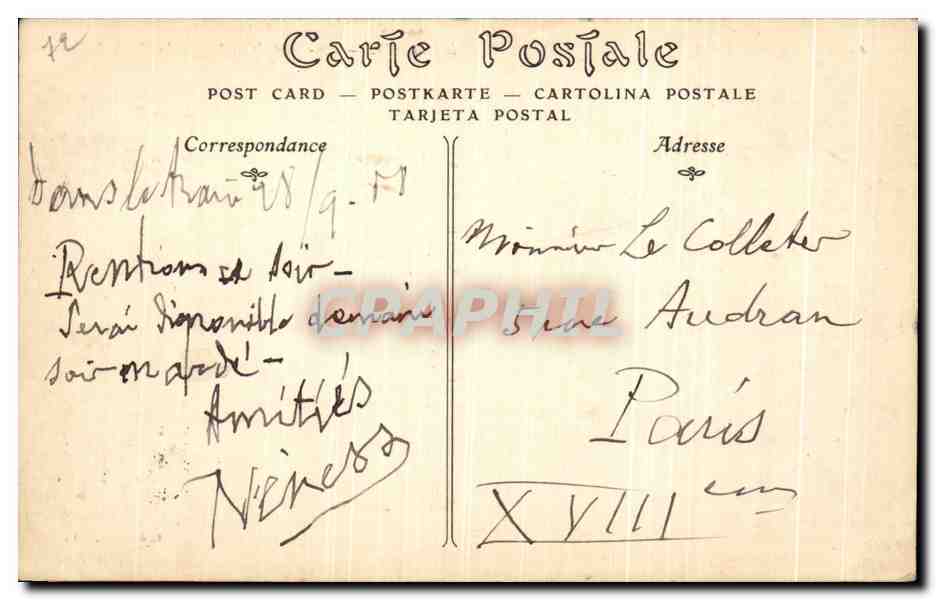 72
Carte Postale
POST CARD — POSTKARTE — CARTOLINA POSTALE
TARJETA POSTAL
Correspondance
Dans le train 28/9.
Rentrons ce soir —
Serai disponible demain
soir mardi —
Amitiés
Adresse
Monsieur Le Colleter
5 rue Audran
Paris
XVIIIème
CPAPHIL